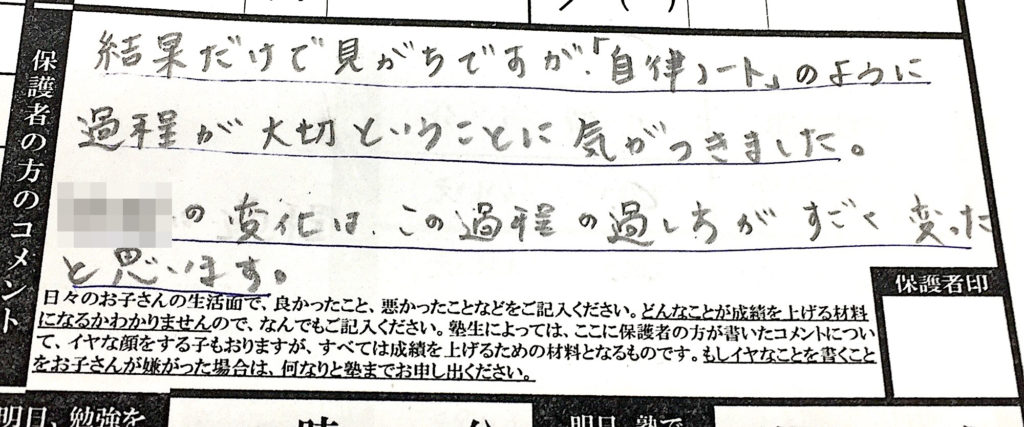 保護者の方のコメント
結果だけで見がちですが、「自律ノート」のように
過程が大切ということに気がつきました。
の変化は、この過程の過しちがすごく変った
と思います。
保護者印
日々のお子さんの生活面で、良かったこと、悪かったことなどをご記入ください。どんなことが成績を上げる材料
になるかわかりませんので、なんでもご記入ください。塾生によっては、ここに保護者の方が書いたコメントについ
て、イヤな顔をする子もおりますが、すべては成績を上げるための材料となるものです。もしイヤなことを書くこと
をお子さんが嫌がった場合は、何なりと塾までお申し出ください。
明日、勉強を
明日、塾で